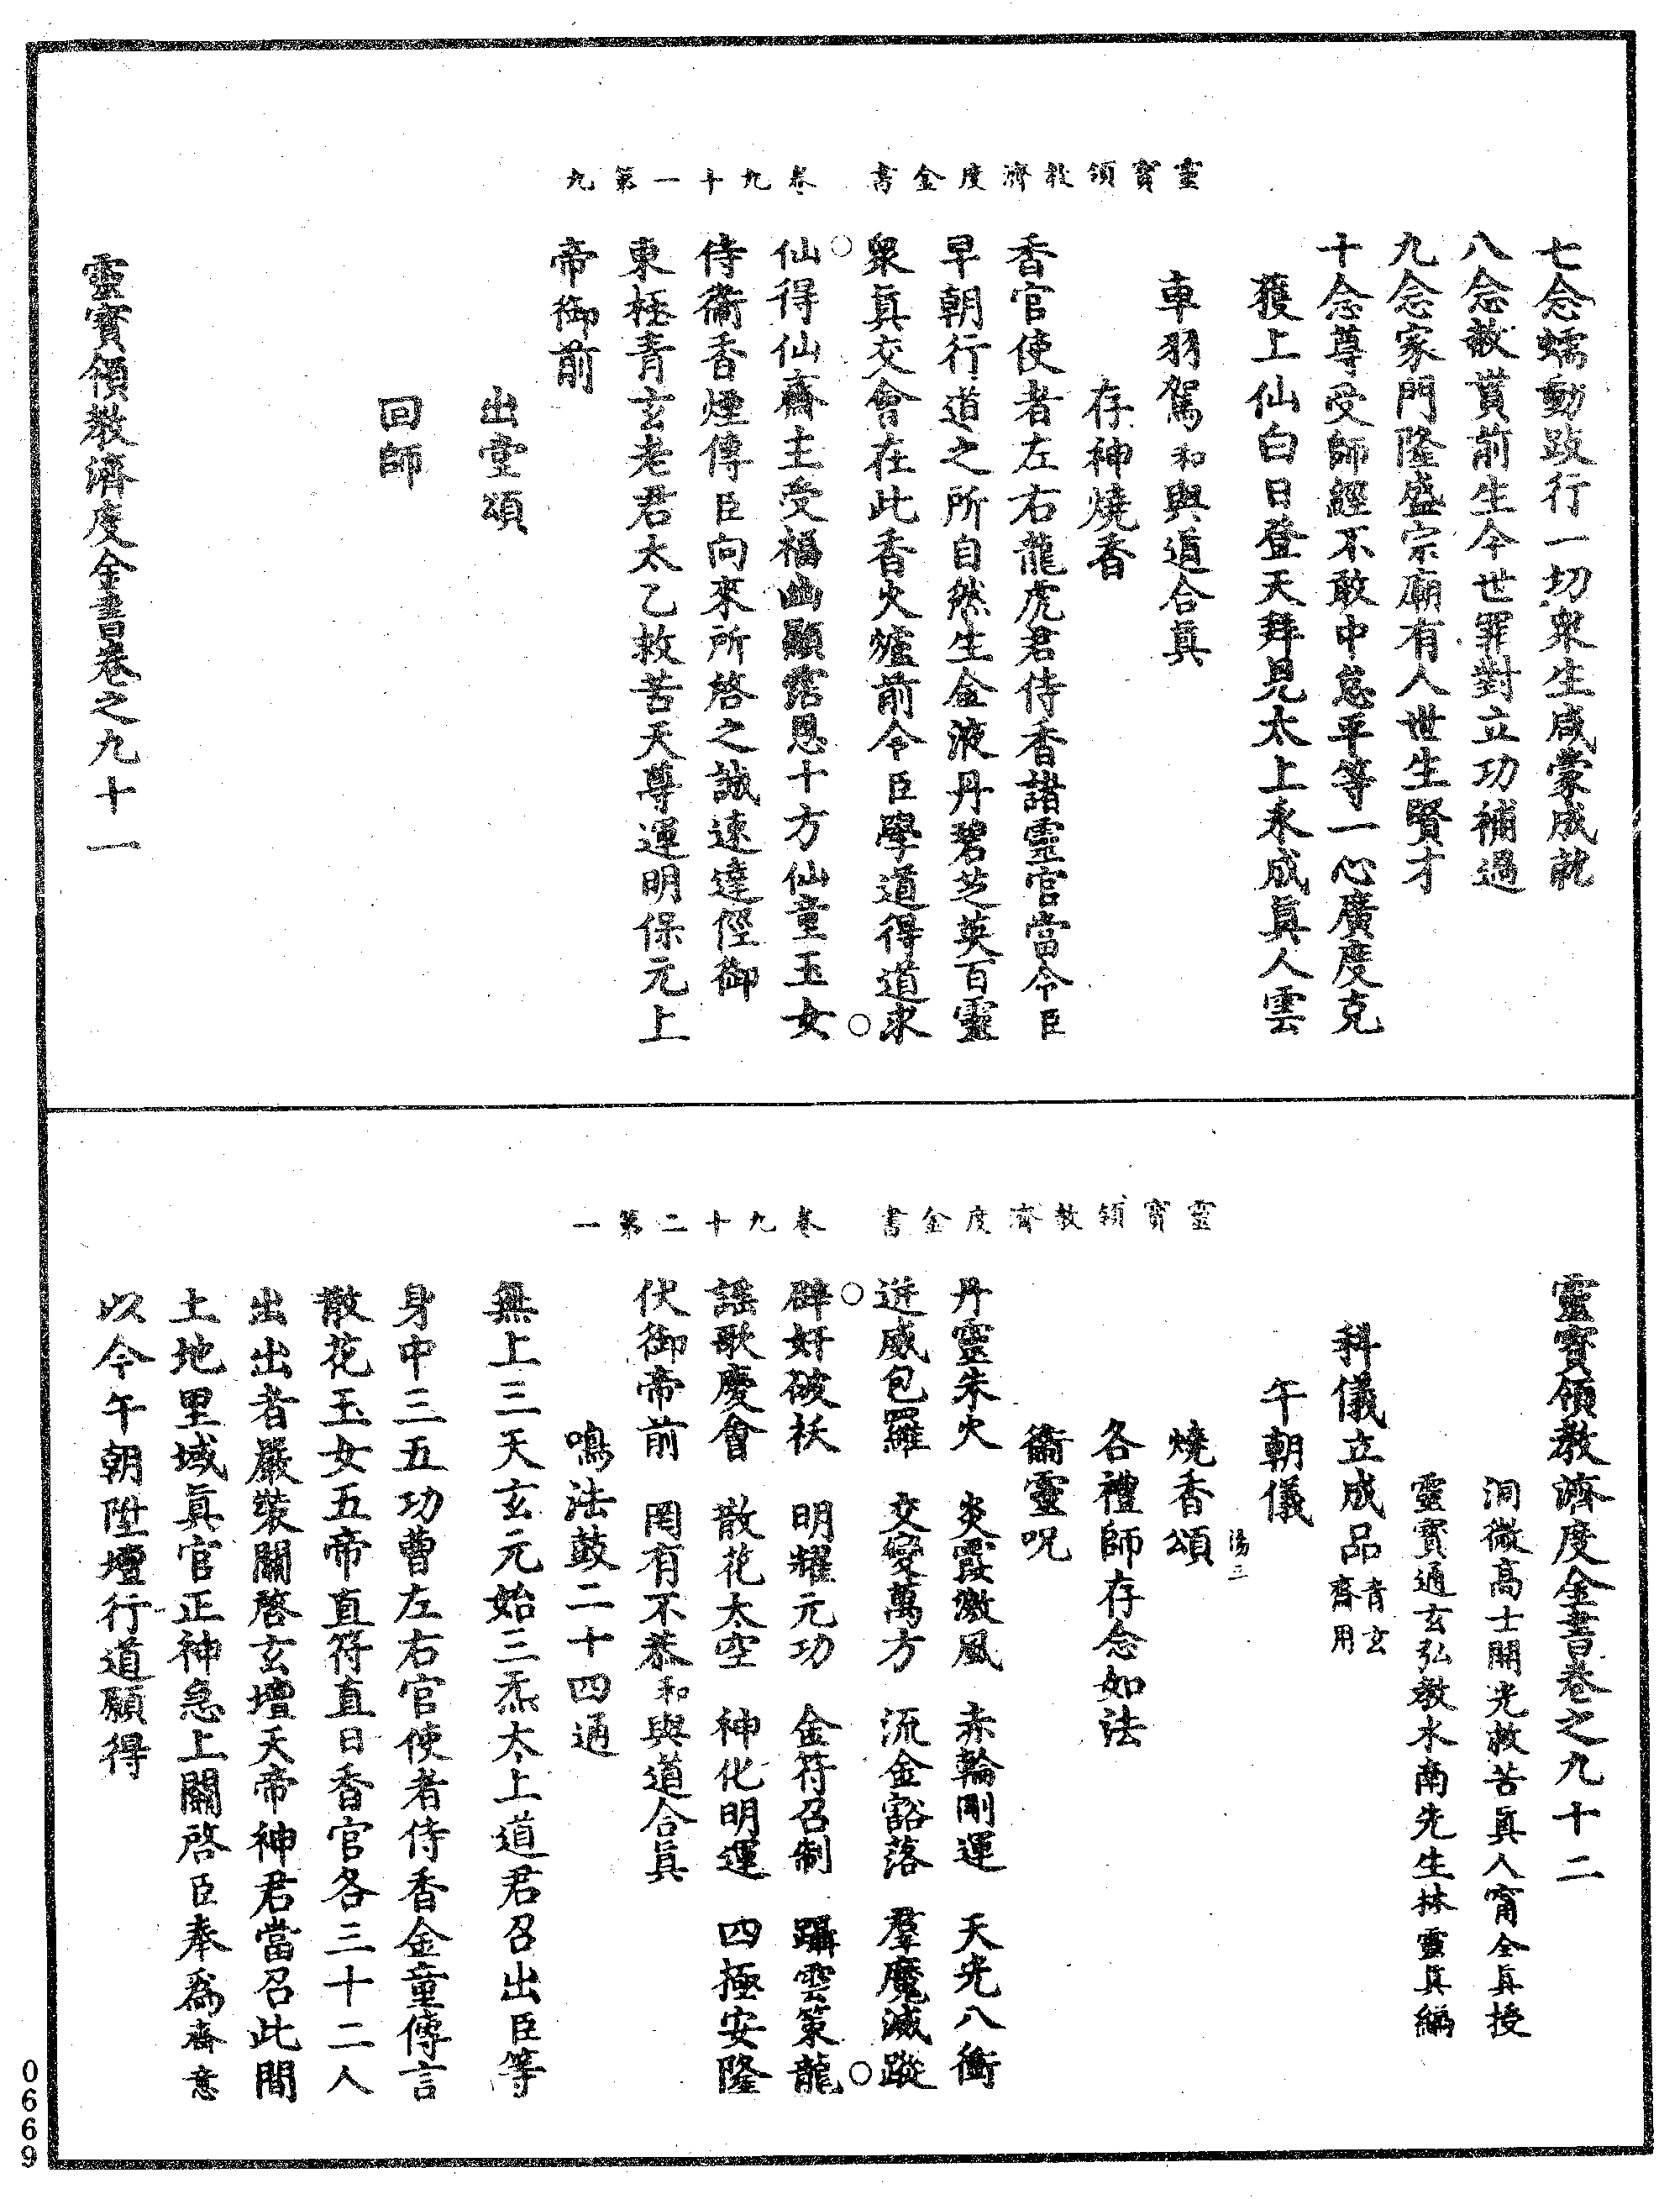 靈寶領教濟度金書　卷九十一第九
七念蠕動跂行一切衆生咸蒙成就
八念赦貰前生今世罪對立功補過
九念家門隆盛宗廟有人世生賢才
十念尊受師經不敢中怠平等一心廣度克
獲上仙白日登天拜見太上永成眞人雲
車羽駕和與道合眞
存神燒香
香官使者左右龍虎君侍香諸靈官當令臣
早朝行道之所自然生金液丹碧芝英百靈
衆眞交會在此香火爐前令臣學道得道求
仙得仙齋主受福幽顯霑恩十方仙童玉女
侍衞香煙傳臣向來所啓之誠速達徑御
東極青玄老君太乙救苦天尊運明保元上
帝御前
出堂頌
回師
靈寶領教濟度金書卷之九十一
靈寶領教濟度金書　卷九十二第一
靈寶領教濟度金書卷之九十二
洞微高士開光救苦眞人甯全眞授
靈寶通玄弘教水南先生林靈眞編
科儀立成品青玄齋用
午朝儀
燒香頌
各禮師存念如法
衞靈呪
丹靈朱火　炎霞激風　赤輪剛運　天光八衝
逆威包羅　交變萬方　流金豁落　羣魔滅蹤
辟奸破祅　明耀元功　金符召制　躡雲策龍
謡歌慶會　散花太空　神化明運　四極安隆
伏御帝前　罔有不恭和與道合眞
鳴法鼓二十四通
無上三天玄元始三炁太上道君召出臣等
身中三五功曹左右官使者侍香金童傳言
散花玉女五帝直符直日香官各三十二人
出出者嚴裝關啓玄壇天帝神君當召此間
土地里域眞官正神急上關啓臣奉爲齋意
以今午朝陞壇行道願得
0669